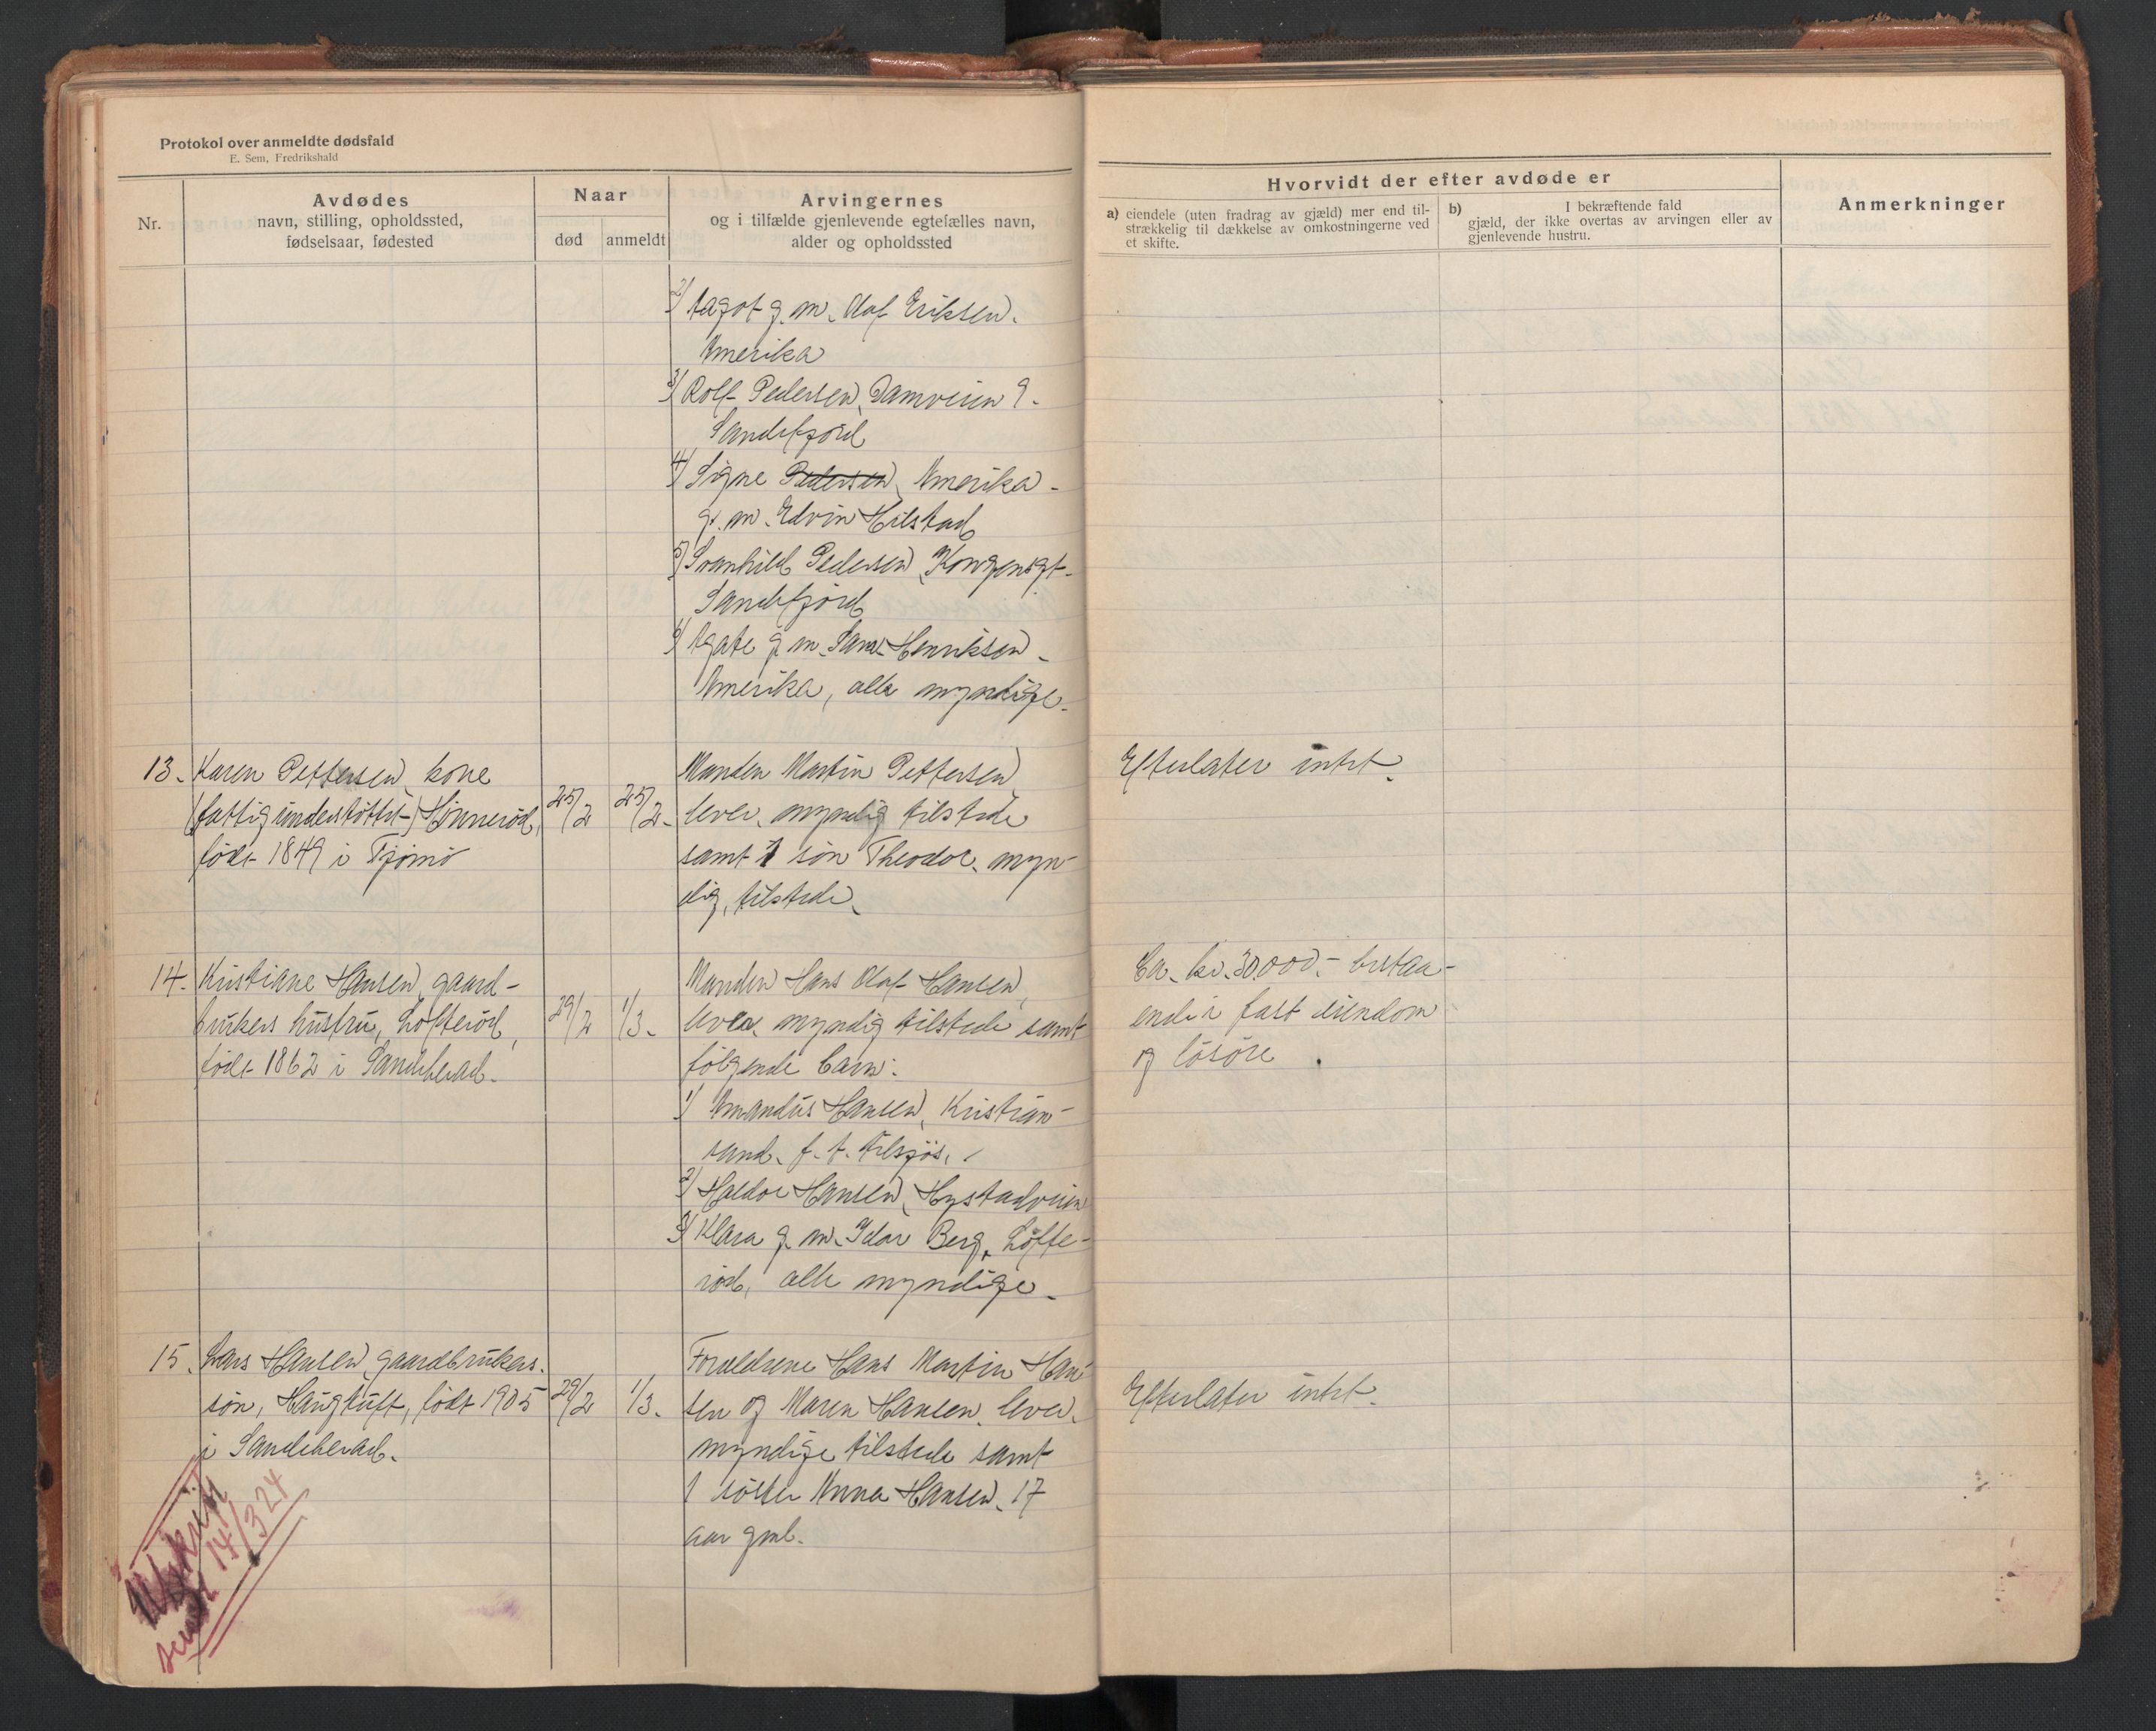 Protokol over anmeldte dødsfald
E. Sem, Fredrikshald
Nr.
Avdødes
navn, stilling, opholdssted,
fødselsaar, fødested
Naar
død
anmeldt
Arvingernes
og i tilfælde gjenlevende egtefælles navn,
alder og opholdssted
Hvorvidt der efter avdøde er
a) eiendele (uten fradrag av gjæld) mer end til-
strækkelig til dækkelse av omkostningerne ved
et skifte.
b) I bekræftende fald
gjæld, der ikke overtas av arvingen eller av
gjenlevende hustru.
Anmerkninger
2/ Aagot g. m. Olaf Eriksen.
Amerika
3/ Rolf Pedersen, Damveien 9.
Sandefjord
4/ Signe Pedersen, Amerika -
g. m. Edvin Hilstad
5/ Svanhild Pedersen, Kongensgt.
Sandefjord
6/ Agate g. m. Henriksen -
Amerika, alle myndige.
13. Karen Pettersen, kone
(fattigunderstøttet) Hønnerød,
født 1849 i Tjømø
25/2
25/2.
Manden Martin Pettersen,
lever, myndig tilstede
samt 1 søn Theodor, myn-
dig, tilstede.
Efterlater intet.
14. Kristiane Hansen, gaard-
brukers hustru, Løfterød,
født 1862 i Sandeherad.
29/2
1/3.
Manden Hans Olaf Hansen,
lever, myndig tilstede samt
følgende barn:
1/ Amandus Hansen, Kristian-
sand. f. t. tilsjøs.
2/ Haldor Hansen, Hystadveien
3/ Klara g. m. Idar Berg, Løfte-
rød, alle myndige.
Ca. kr. 30.000.- bestaa-
ende i fast eiendom
og løsøre.
15. Lars Hansen, gaardbrukers.
søn, Haugtuft, født 1905
i Sandeherad.
29/2
1/3.
Forældrene Hans Martin Han-
sen og Maren Hansen, lever,
myndige tilstede samt
1 søster Anna Hansen, 17
aar gml.
Efterlater intet.
Utskrift
sendt 14/3 24